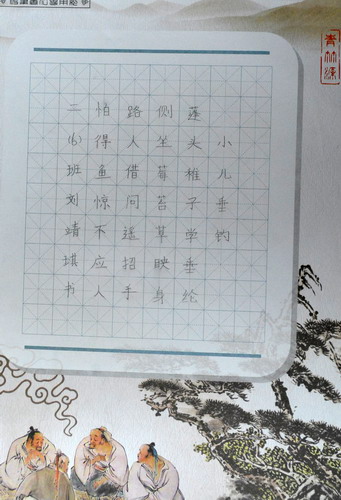 小儿垂钓
蓬头稚子学垂纶
侧坐莓苔草映身
路人借问遥招手
怕得鱼惊不应人
二(6)班刘靖琪书